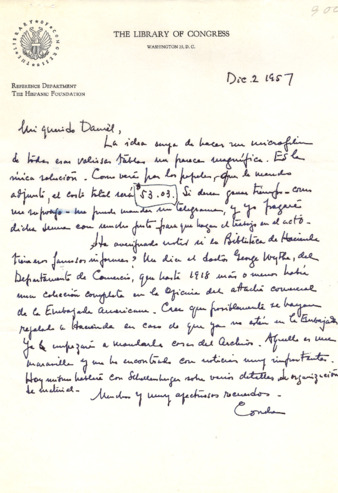 THE LIBRARY OF CONGRESS
WASHINGTON 25, D. C.
REFERENCE DEPARTMENT
THE HISPANIC FOUNDATION
Dic. 2 1957
Mi querido Daniel,
La idea suya de hacer un microfilm
de todas esas valiosas tablas me parece magnífica. Es la
única solución. Como verá por los papeles que le mando
adjunto, el costo total será $53.03. Si desea ganar tiempo - como
me supongo - me puede mandar un telegrama, y yo pagaré
dicha suma con mucho gusto para que hagan el trabajo en el acto.
Ha averiguado usted si la Biblioteca de Hacienda
tiene esos famosos informes? Me dice el doctor George Wythe, del
Departamento de Comercio, que hasta 1918 más o menos había
una colección completa en la oficina del attaché comercial
de la Embajada Americana. Cree que posiblemente se hayan
regalado a Hacienda en caso de que ya no estén en la Embajada.
Ya empezaré a mandarle cosas del Archivo. Aquello es una
maravilla y me he encontrado con noticias muy importantes.
Hoy mismo hablaré con Schellenberg sobre varios detalles de organización
de material.
Muchos y muy afectuosos recuerdos.